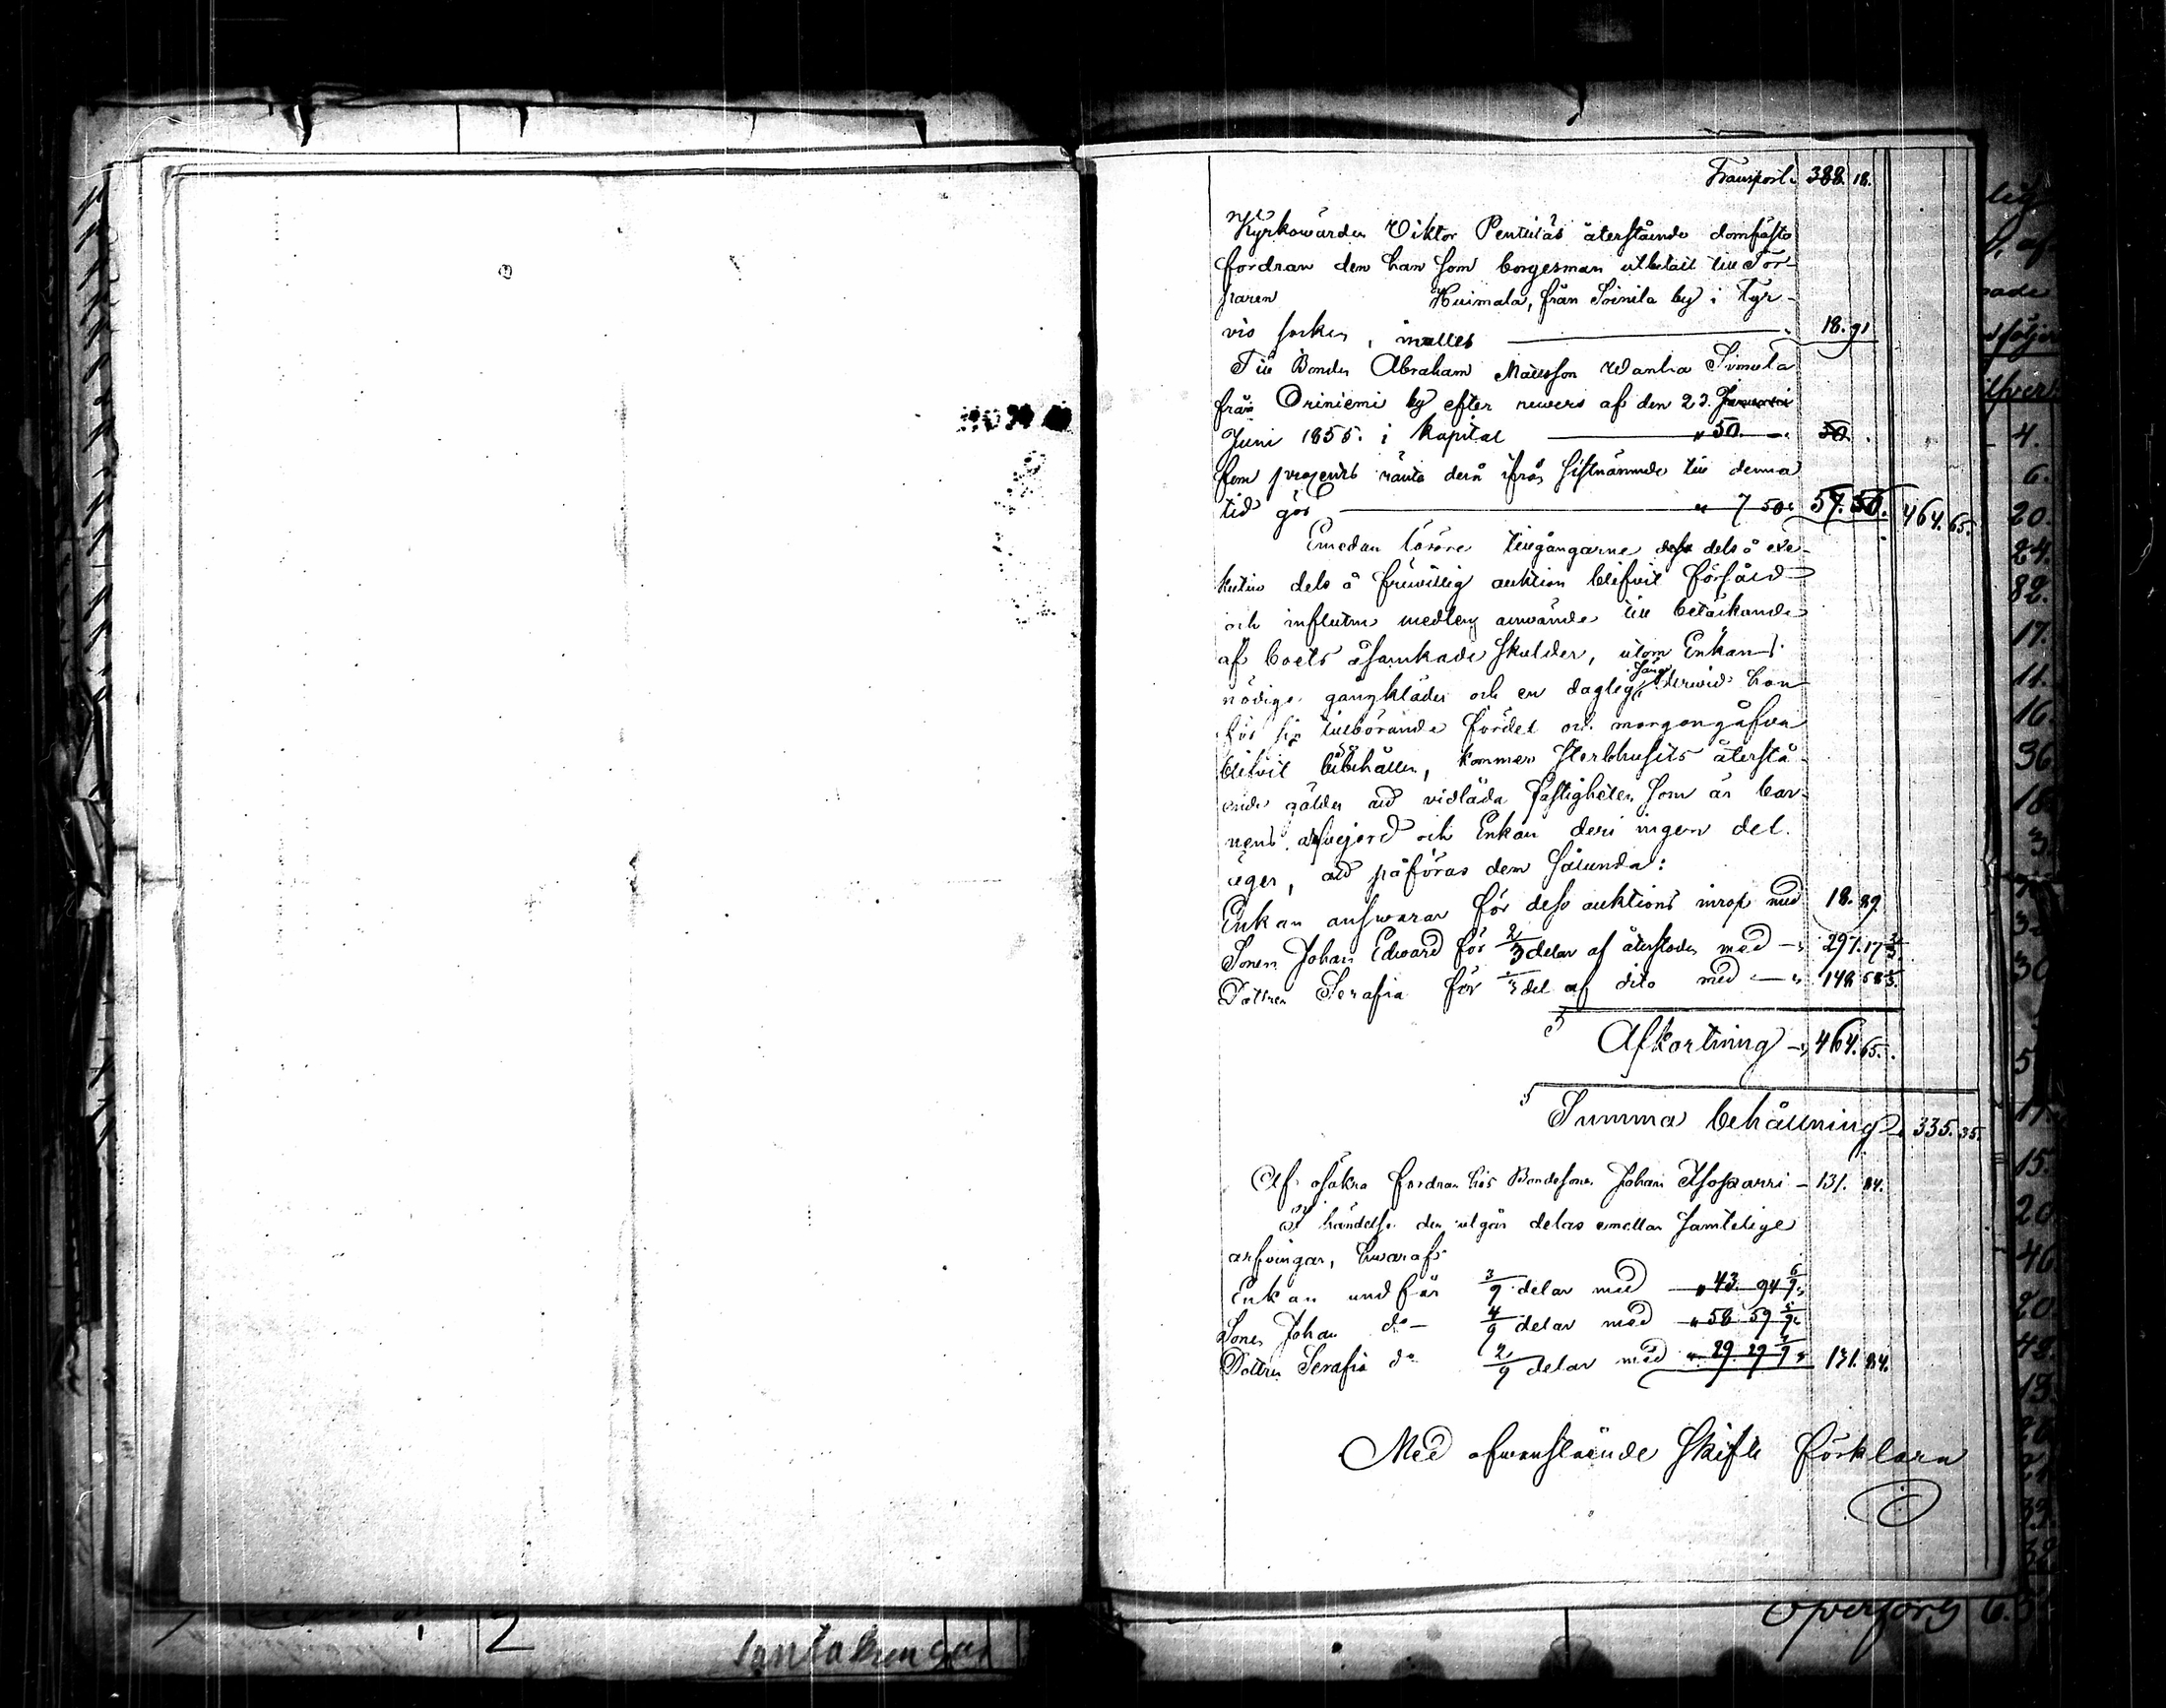 Transport. 388. 18.
Kyrkowärden Viktor Penttiläs återstående domfästa
fordran den han som borgesman utbetalt till Tor-
paren Huimala, från Soinila by i Tyr-
vis socken, inalles 18. 91
Till Bonden Abraham Mattsson Wanha Simula
från Oriniemi by efter revers af den 23. Januari
Juni 1855. i Kapital " 50. —. 50.
fem procents ränta derå ifrån sistnämnde till denna
tid gör " 7 50. 57. 50. 464. 65.
Emedan lösöre tillgångarne dels å exe-
kutiv dels å friwillig auktion blifvit försåld
och influtne medlen använde till betäckande
af boets åsamkade skulder, utom Enkans
nödige gångkläder och en daglig säng derwid hon
för sin tillbörande fördel och morgongåfva
blifvit bibehållen, kommer Sterbhusets återstå-
ende gälder att vidlåda fastigheten som är bar-
nens arfvejord och Enkan deri ingen del
äger, att påföras dem sålunda:
Enkan answarar för dess auktions inrop med 18. 89
Sonen Johan Edward för 2/3 delar af återstoden med — " 297. 17 1/3
Dottren Serafia för 1/3 del af dito med — " 148 58 2/3.
Afkortning — " 464. 65.
Summa behållning 335. 35.
Af osäkra fordran hos Bondesonen Johan Isosaari — 131. 84.
i händelse den utgår delas emellan samtelige
arfvingar, hwaraf
Enkan undfår 3/9 delar med " 43. 94 6/9
Sonen Johan do — 4/9 delar med " 58 59 5/9
Dottren Serafia do 2/9 delar med " 29. 29 7/9 131. 84.
Med ofwanstående skifte förklara